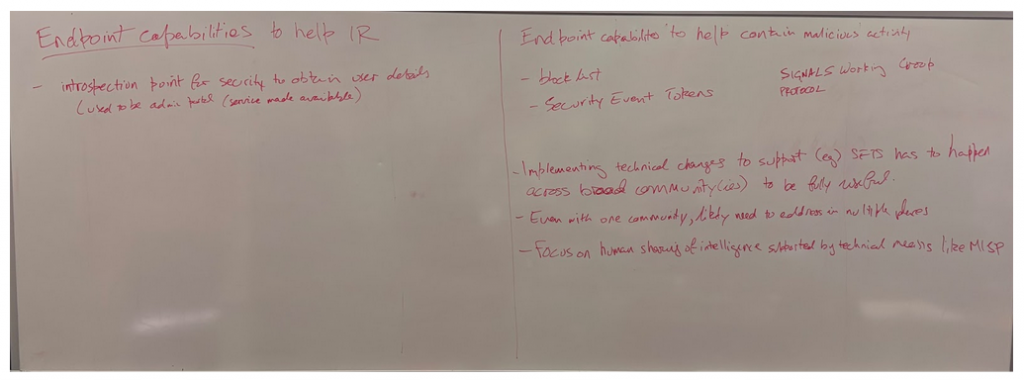 Endpoint capabilities to help IR
- introspection point for security to obtain user details
(used to be admin portal (service made available)
Endpoint capabilities to help contain malicious activity
- block list
- Security Event Tokens
SIGNALS Working Group
PROTOCOL
- Implementing technical changes to support (eg) SETS has to happen
across broad community(ies) to be fully useful.
- Even with one community, likely need to address in multiple places
- Focus on human sharing of intelligence supported by technical means like MISP